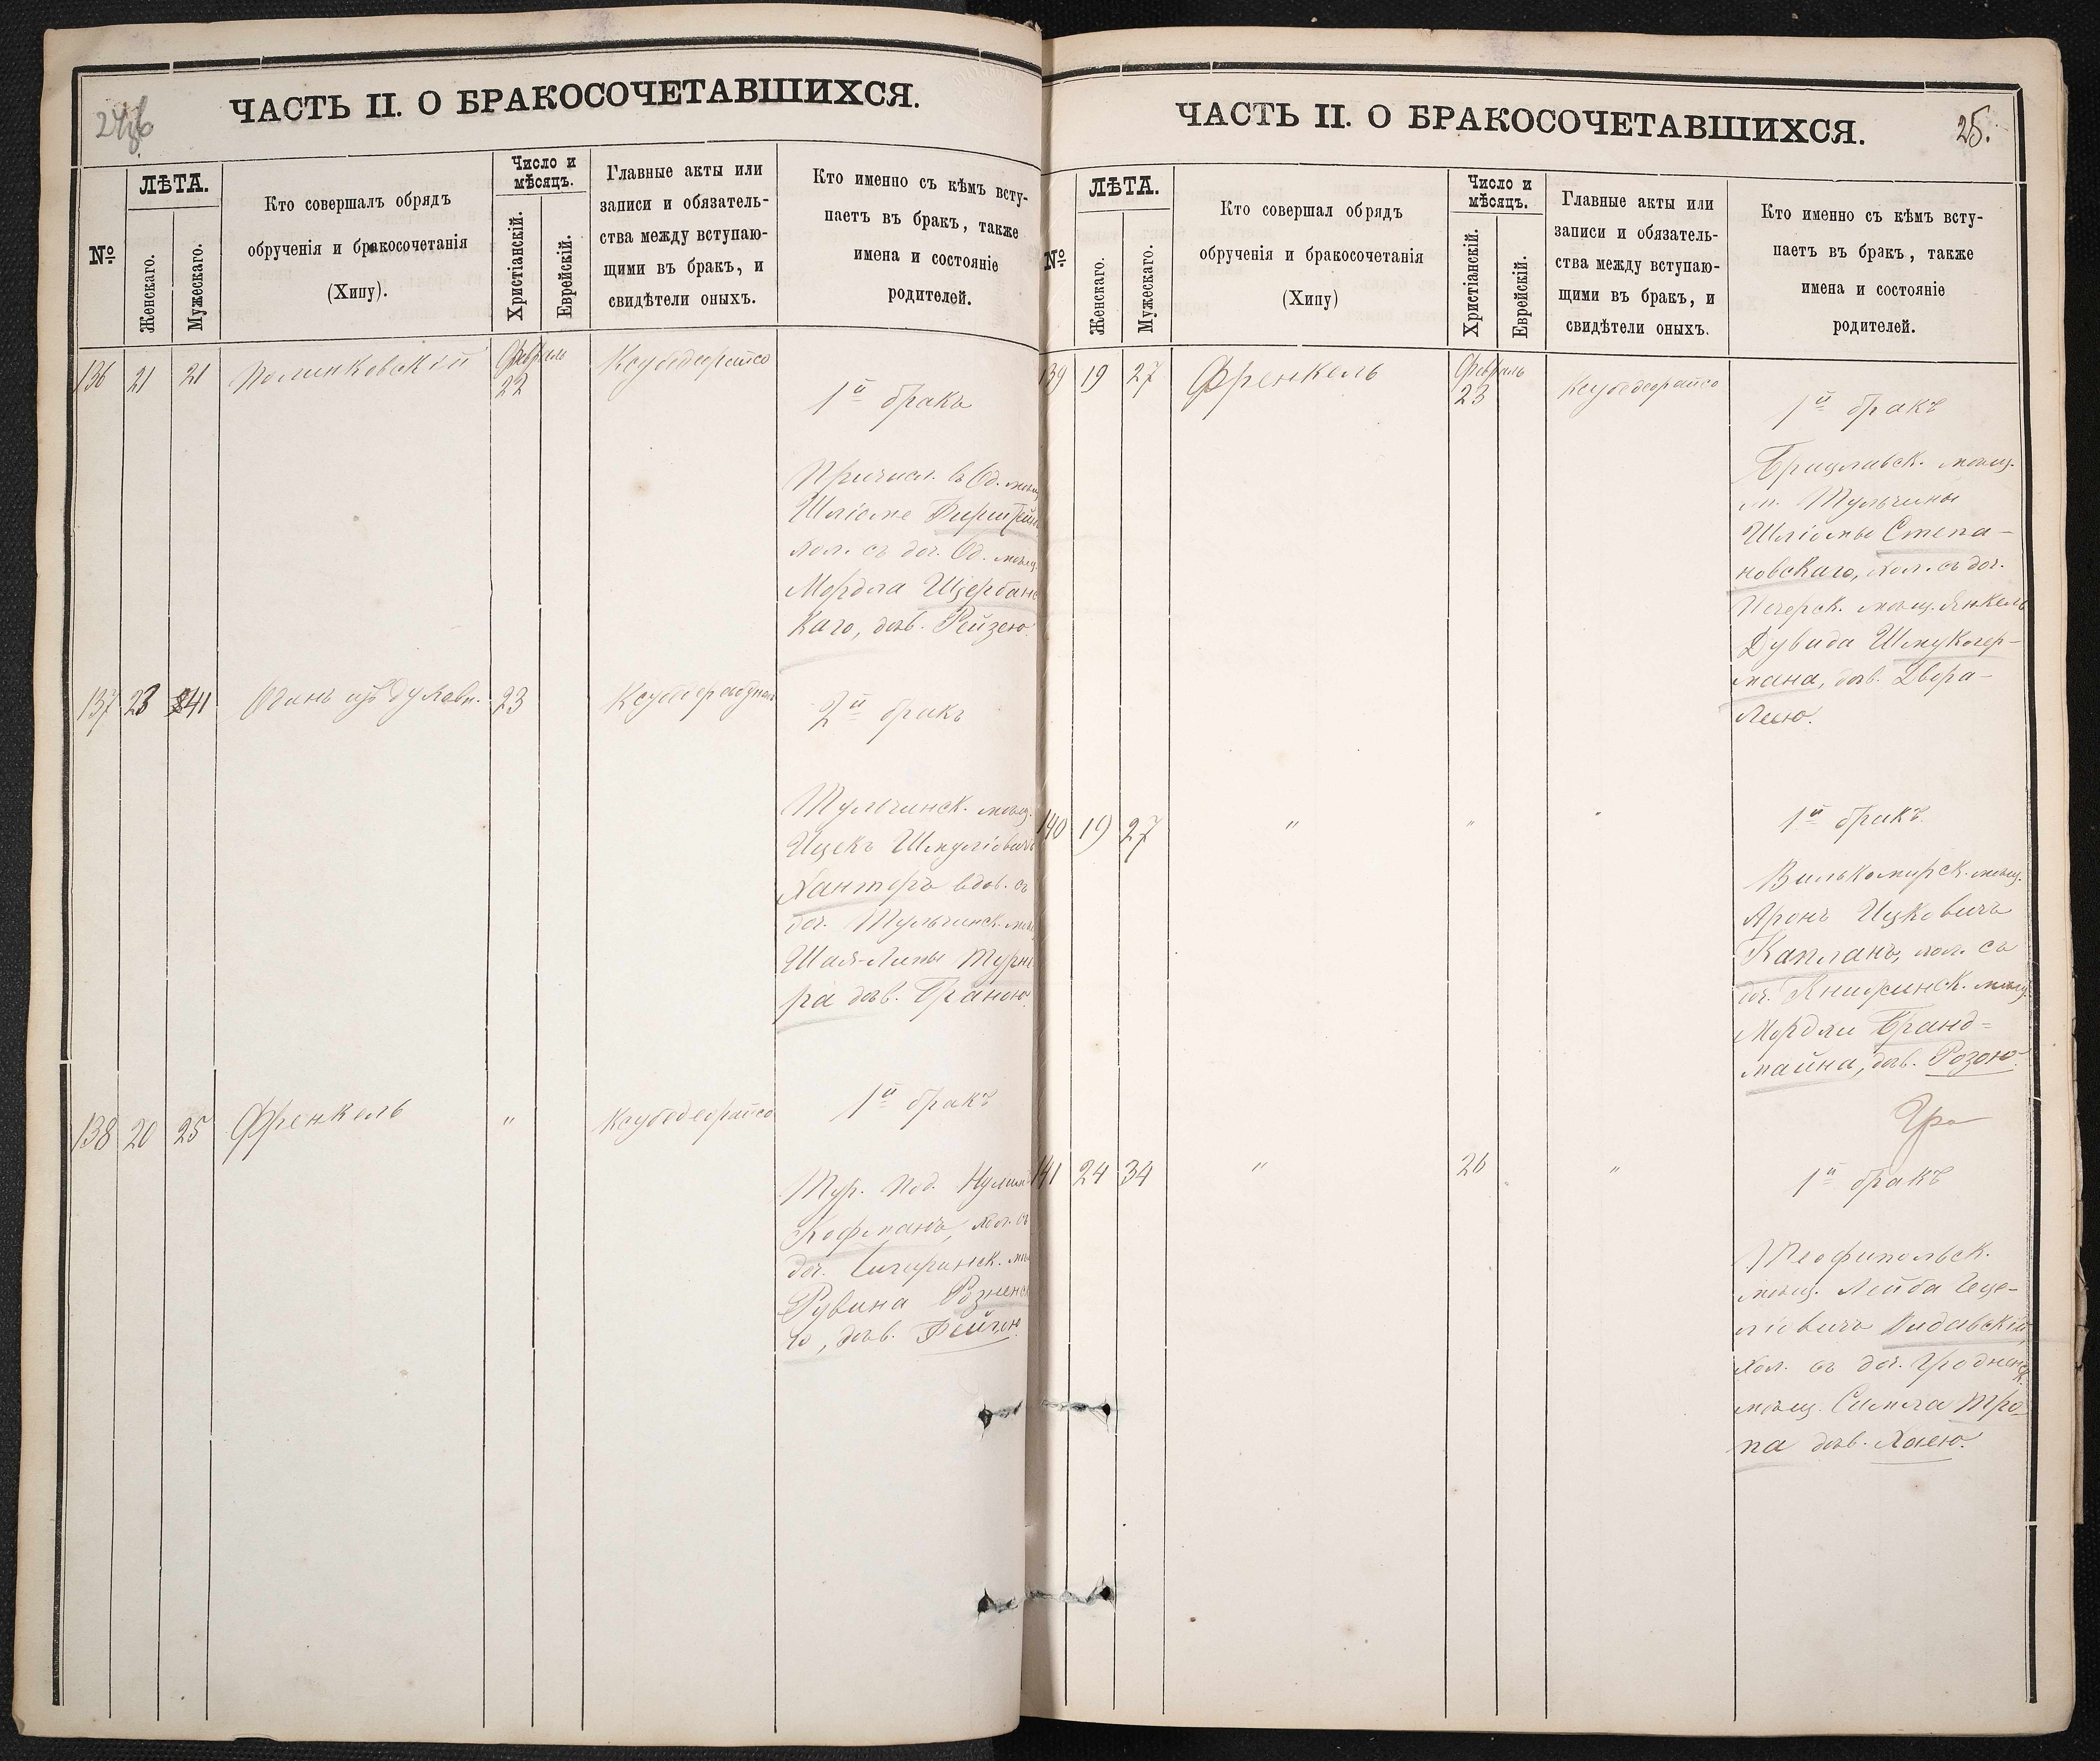 ЧАСТЬ II. О БРАКОСОЧЕТАВШИХСЯ.
№
ЛѢТА.
Женскаго.
Мужескаго.
Кто совершалъ обрядъ
обрученія и бракосочетанія
(Хипу).
Число и
мѣсяцъ.
Христіанскій.
Еврейскій.
Главные акты или
записи и обязатель-
ства между вступаю-
щими въ бракъ, и
свидѣтели оныхъ.
Кто именно съ кѣмъ всту-
паетъ въ бракъ, также
имена и состояніе
родителей.
136 21 21 Полинковскій Февраль
22
1й бракъ
Причисл. в Од. мѣщ
Шліоме
хол. съ доч. Од. мѣщ.
Мордка Щербанс
каго, дѣв. Рейзею.
137 23 41 23
2й бракъ
Тульчинск. мѣщ.
Ицекъ Шмуліовичъ
Кантеръ вдов. съ
доч. Тульчинск. мѣщ
Шая-Липы Турне
ра дѣв. Браною.
138 20 25 Френкель "
1й бракъ
Тур. Под.
Кофманъ, хол. съ
доч. Чигиринск. мѣ
Рувина Розненс
го, дѣв. Фейгою.
ЧАСТЬ II. О БРАКОСОЧЕТАВШИХСЯ.
25.
№
ЛѢТА.
Женскаго.
Мужескаго.
Кто совершал обрядъ
обрученія и бракосочетанія
(Хипу)
Число и
мѣсяцъ.
Христіанскій.
Еврейскій.
Главные акты или
записи и обязатель-
ства между вступаю-
щими въ бракъ, и
свидѣтели оныхъ.
Кто именно съ кѣмъ всту-
паетъ въ бракъ, также
имена и состояніе
родителей.
139 19 27 Френкель Февраль
23
1й бракъ
Брацлавск. мѣщ.
м. Тульчины
Шліомы Степа-
новскаго, хол. съ доч.
Печерск. мѣщ. Янкель
Дувида Шмуклер-
мана, дѣв. Двора-
Леею.
140 19 27 " " "
1й бракъ
Вилькомирск. мѣщ.
Аронъ Ицковичъ
Капланъ, хол. съ
доч. Книшинск. мѣщ.
Мордки Бранд-
майна, дѣв. Розою.
141 24 34 " 26 "
1й бракъ
Теофипольск.
мѣщ. Лейба Геце-
ліовичъ Видавскій,
хол. съ доч. Гроднен
мѣщ. Симха Тро
па дѣв. Хаею.